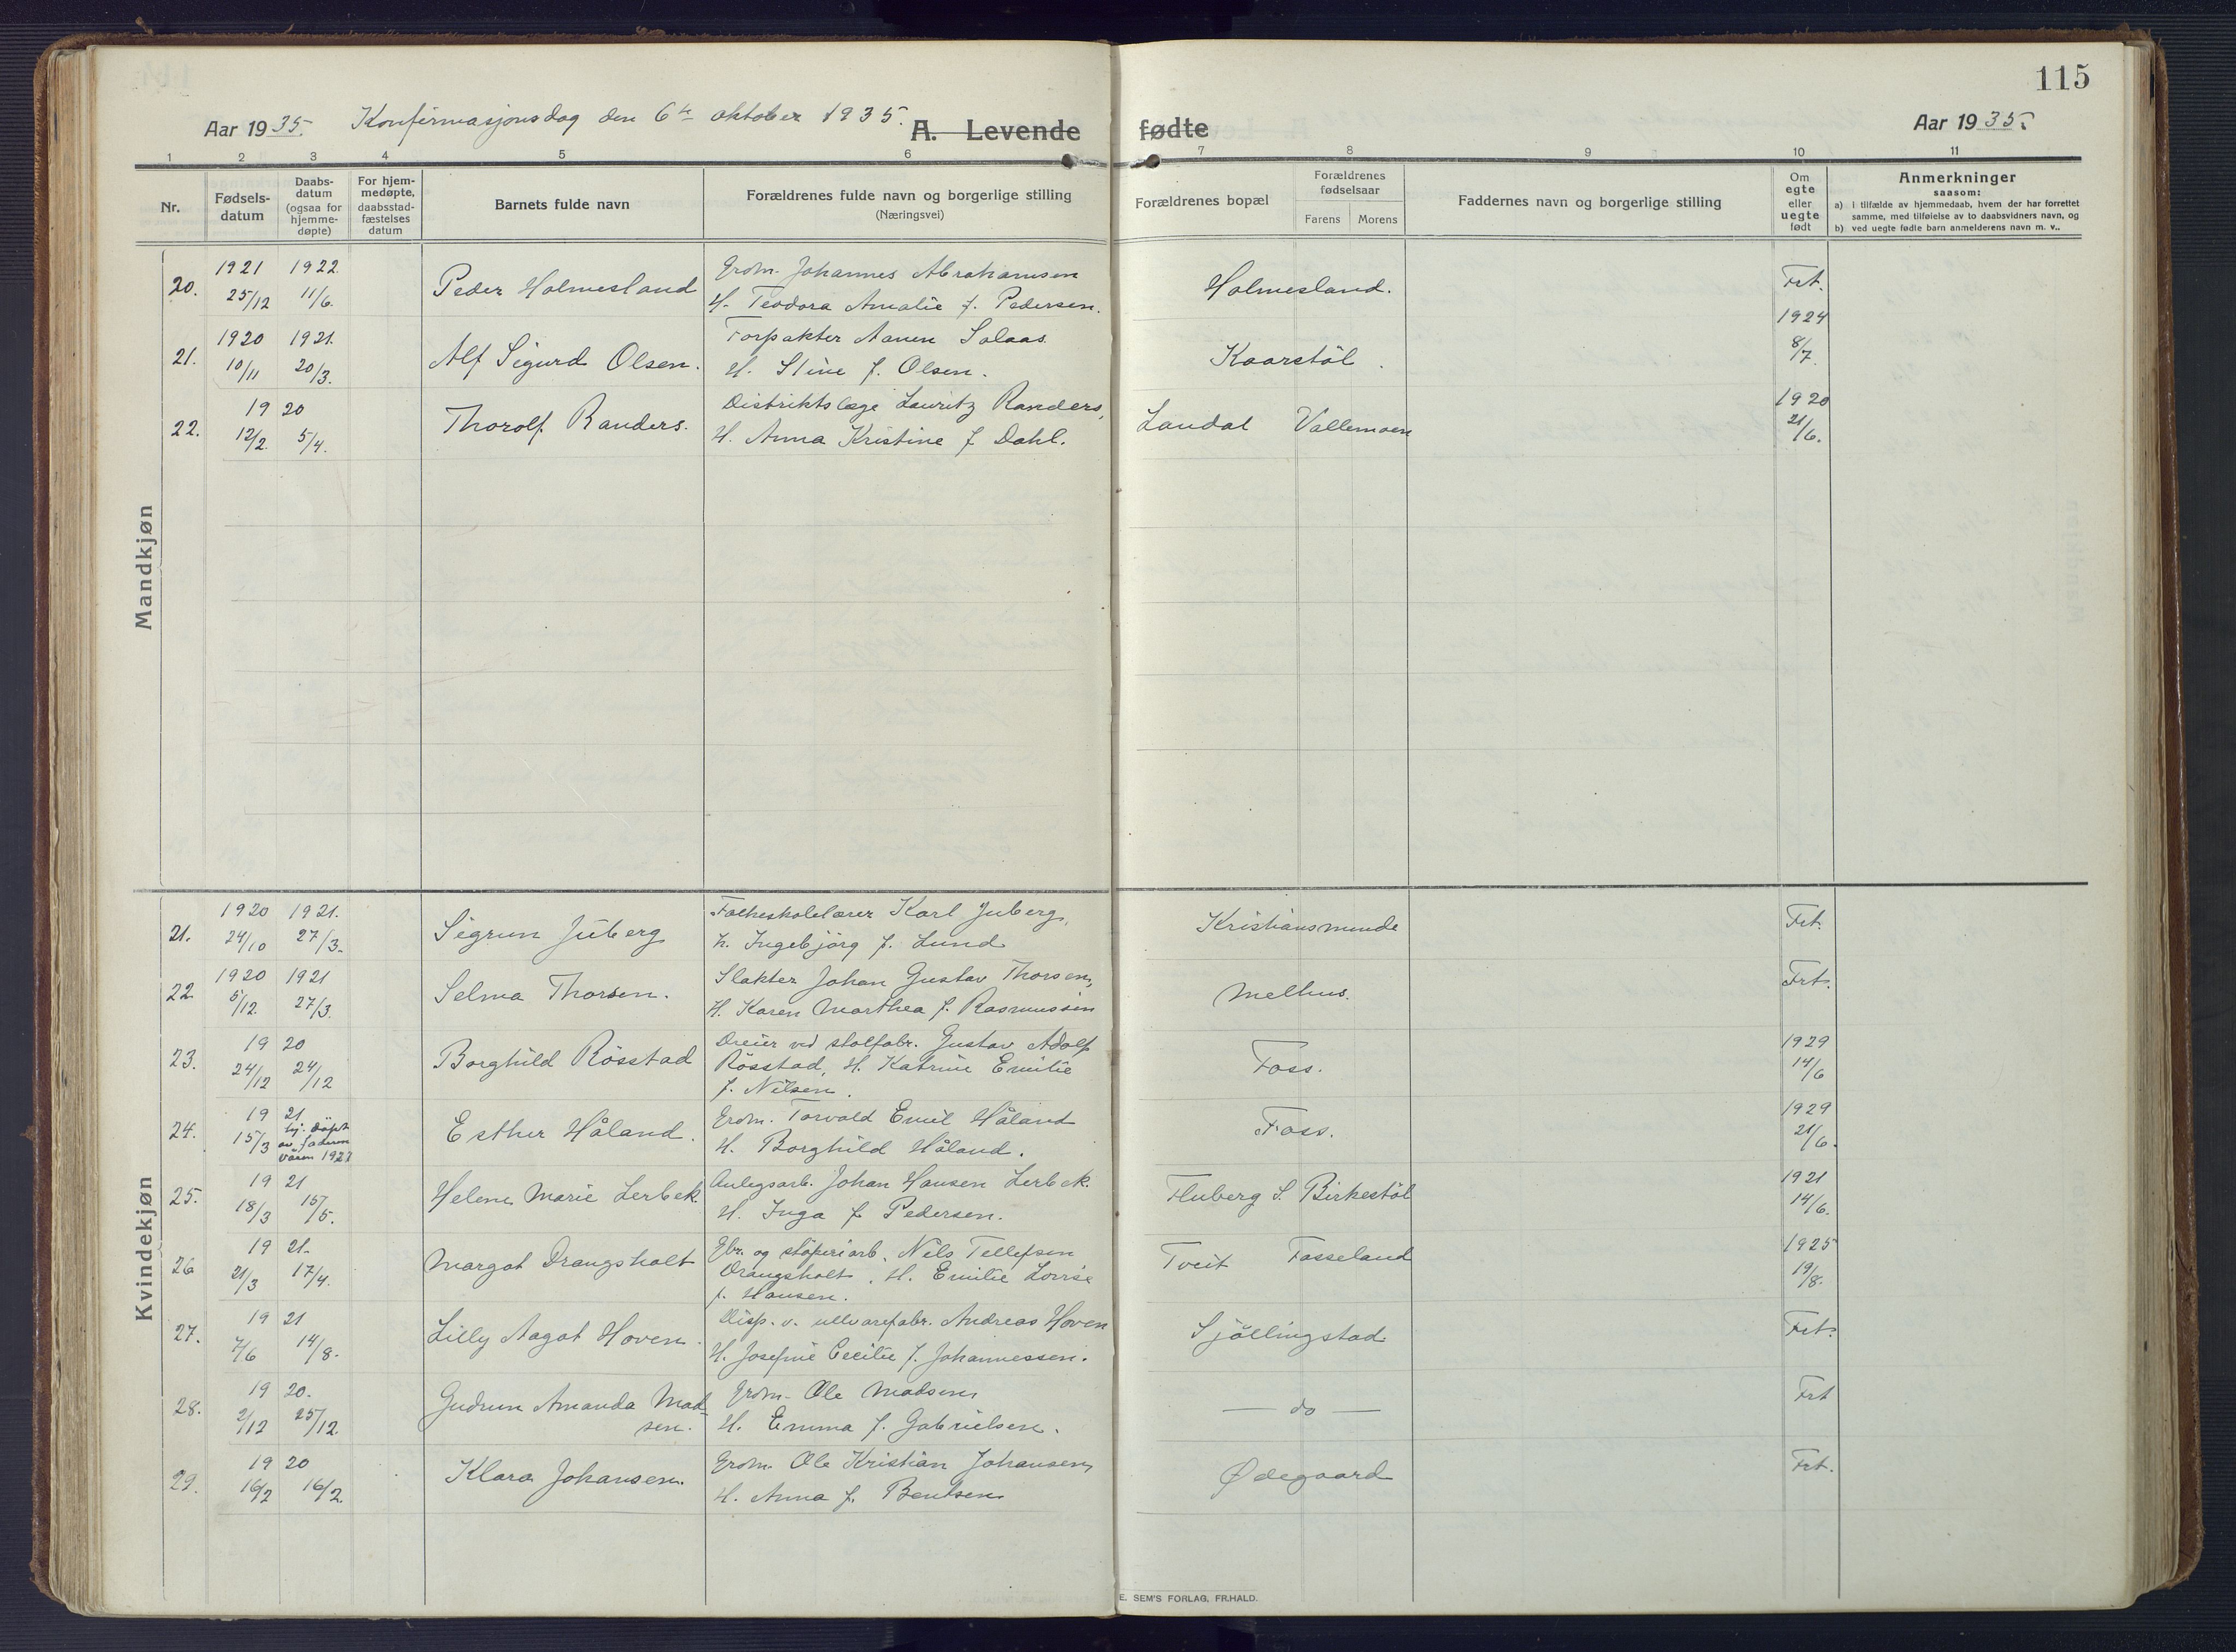 115
Aar 1935. Konfirmasjonsdag den 6te oktober 1935. A. Levende fødte Aar 1935.
1 2 3 4 5 6 7 8 9 10 11
Nr.
Fødsels-
datum
Daabs-
datum
(ogsaa for
hjemme-
døpte)
For hjem-
medøpte,
daabsstad-
fæstelses
datum
Barnets fulde navn
Forældrenes fulde navn og borgerlige stilling
(Næringsvei)
Forældrenes bopæl
Forældrenes
fødselsaar
Farens Morens
Faddernes navn og borgerlige stilling
Om
egte
eller
uegte
født
Anmerkninger
saasom:
a) i tilfælde av hjemmedaab, hvem der har forrettet
samme, med tilføielse av to daabsvidners navn, og
b) ved uegte fødte barn anmelderens navn m. v..
Mandkjøn
20. 1921 25/12 1922. 11/6. Peder Holmesland
Grdm. Johannes Abrahamsen
H. Teodora Amalie f. Pedersen.
Holmesland. Frt.
21. 1920 10/11 1921. 20/3. Alf Sigurd Olsen.
Forpakter Aanen Solaas
H. Stine f. Olsen.
Kaarstöl 1924 8/7.
22. 1920 12/2. 5/4. Thorolf Randers.
Distriktslæge Lauritz Randers,
H. Anna Kristine f. Dahl.
Laudal Vallemoen 1920 21/6.
Kvindekjøn
21. 1920 24/10 1921. 27/3. Sigrun Juberg
Folkeskolelærer Karl Juberg,
h. Ingebjörg f. Lund
Kristiansminde Frt.
22 1920 5/12. 1921 27/3. Selma Thorsen.
Slakter Johan Gustav Thorsen,
H. Karen Marthea f. Rasmussen
Melhus. Frt.
23. 1920 24/12 24/12 Borghild Rösstad
Dreier ved stolfabr. Gustav Adolf
Rösstad, H. Katrine Emilie
f. Nilsen.
Foss. 1929 14/6
24. 1921 15/3 hj. döpt
av faderen
våren 192
Esther Håland.
Grdm. Torvald Emil Håland
H. Borghild Håland.
Foss. 1929 21/6.
25. 1921 18/3 15/5. Helene Marie Lerbek
Anlegsarb. Johan Hansen Lerbek.
H. Inga f. Pedersen.
Fluberg S. Birkestöl 1921 14/6.
26 1921. 21/3 17/4. Margot Drangsholt
Gbr. og støperiarb. Nils Tellefsen
Drangsholt. H. Emilie Lovise
f. Hansen.
Tveit Fosseland 1925 19/8.
27. 1921 7/6 14/8. Lilly Aagot Hoven.
Disp. v. ullvarefabr. Andreas Hoven
H. Josefine Cecilie f. Johannessen.
Sjöllingstad. Frt.
28. 1920. 2/12 25/12. Gudrun Amanda Mad-
sen.
Grdm. Ole Madsen
H. Emma f. Gabrielsen.
— do — Frt
29. 1920 16/2 16/2. Klara Johansen.
Grdm. Ole Kristian Johansen
H. Anna f. Bentsen
Ødegaard Frt.
E. SEM'S FORLAG, FR.HALD.